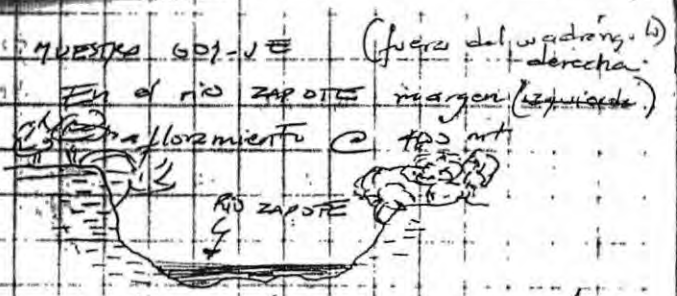 MUESTRA 601-JE (fuera del cuadrángulo)
derecha.
En el río ZAPOTE margen (izquierda)
afloramiento @ 400 mt
RIO ZAPOTE